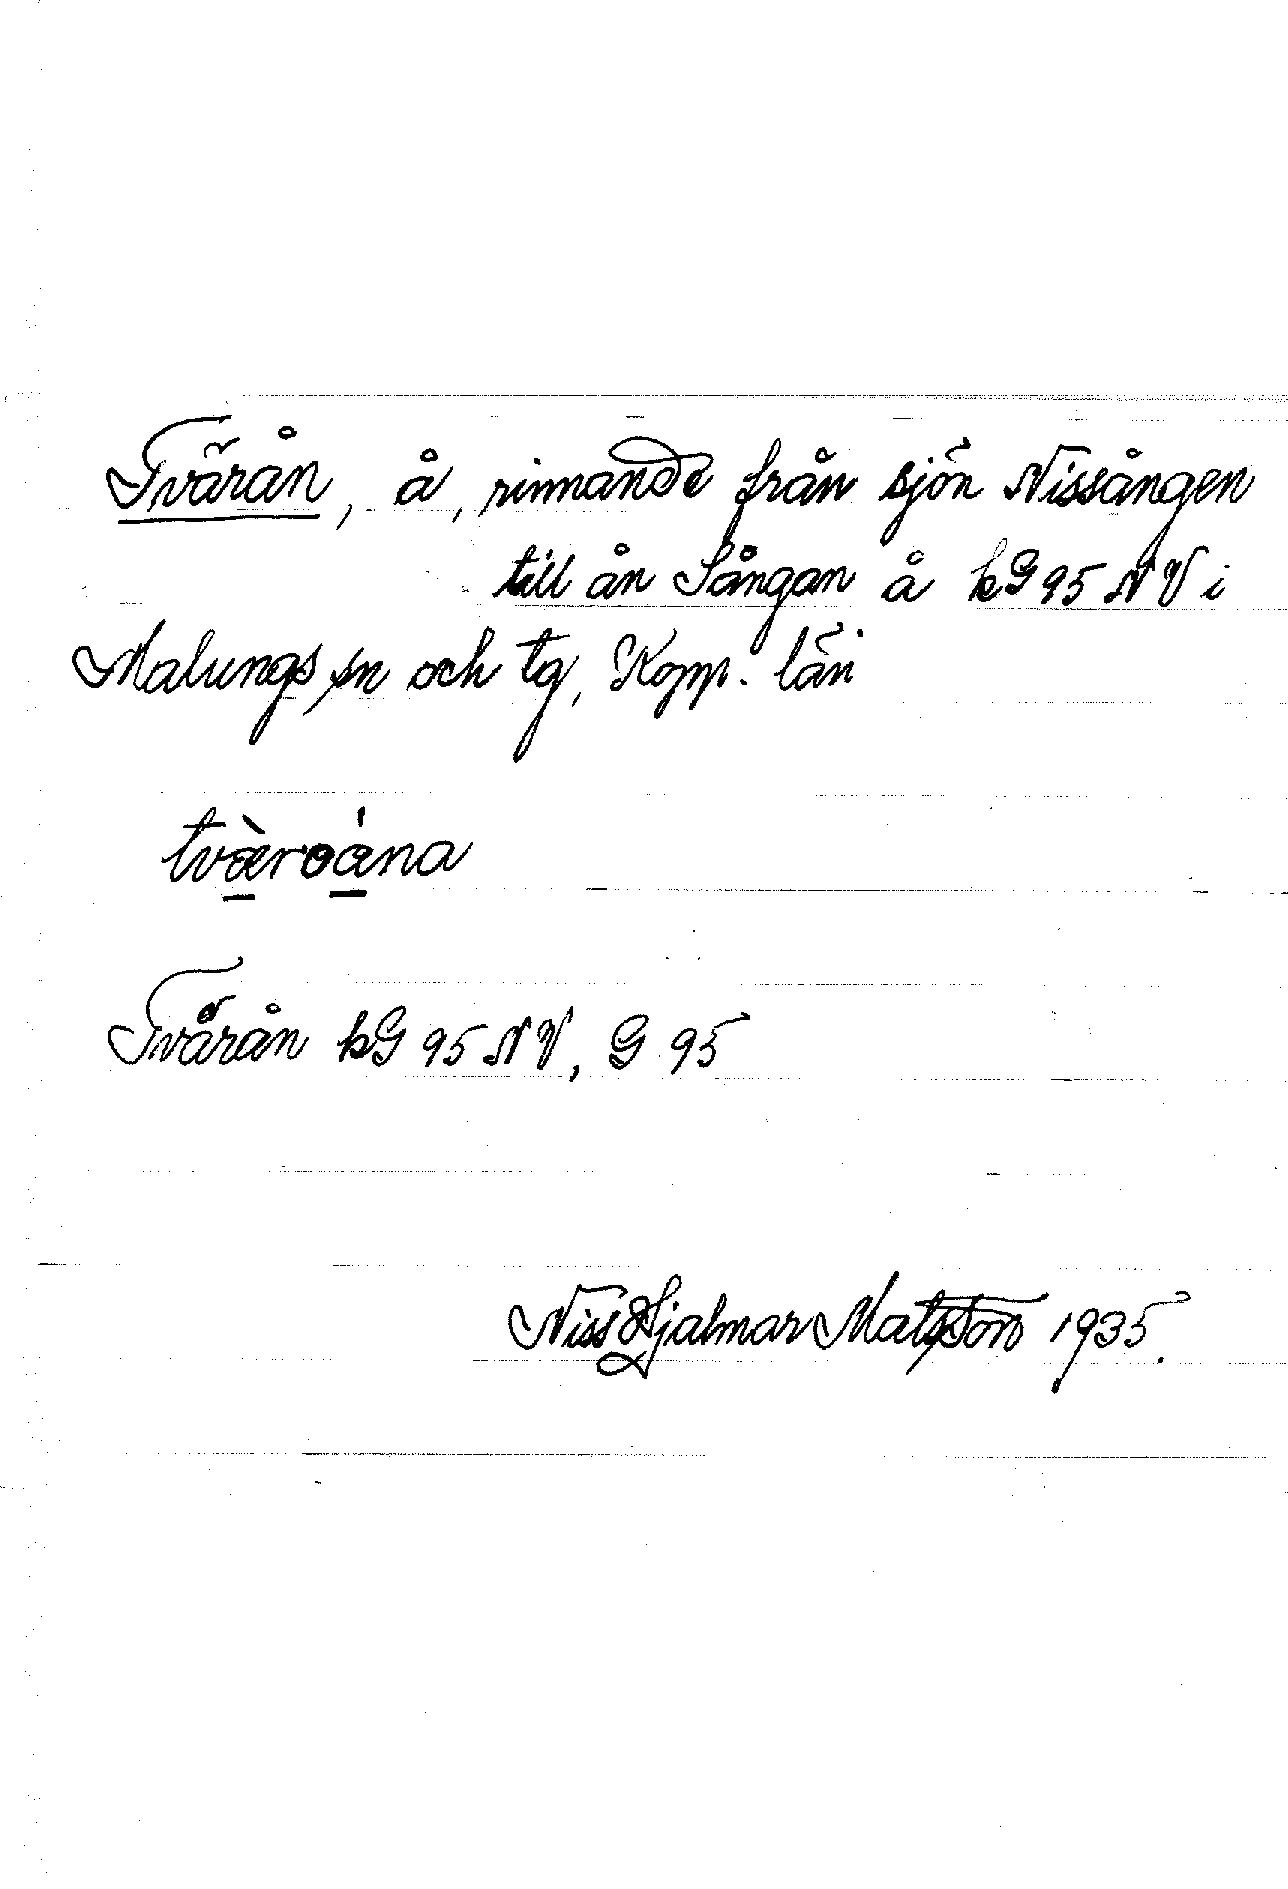 Tvärån, å, rinnande från sjön Nissången
till ån Sångan å kG 95 NV i
Malungs sn och tg, Kopp. län
tvàroána
Tvärån kG 95 NV, G 95
Niss Hjalmar Matsson 1935.